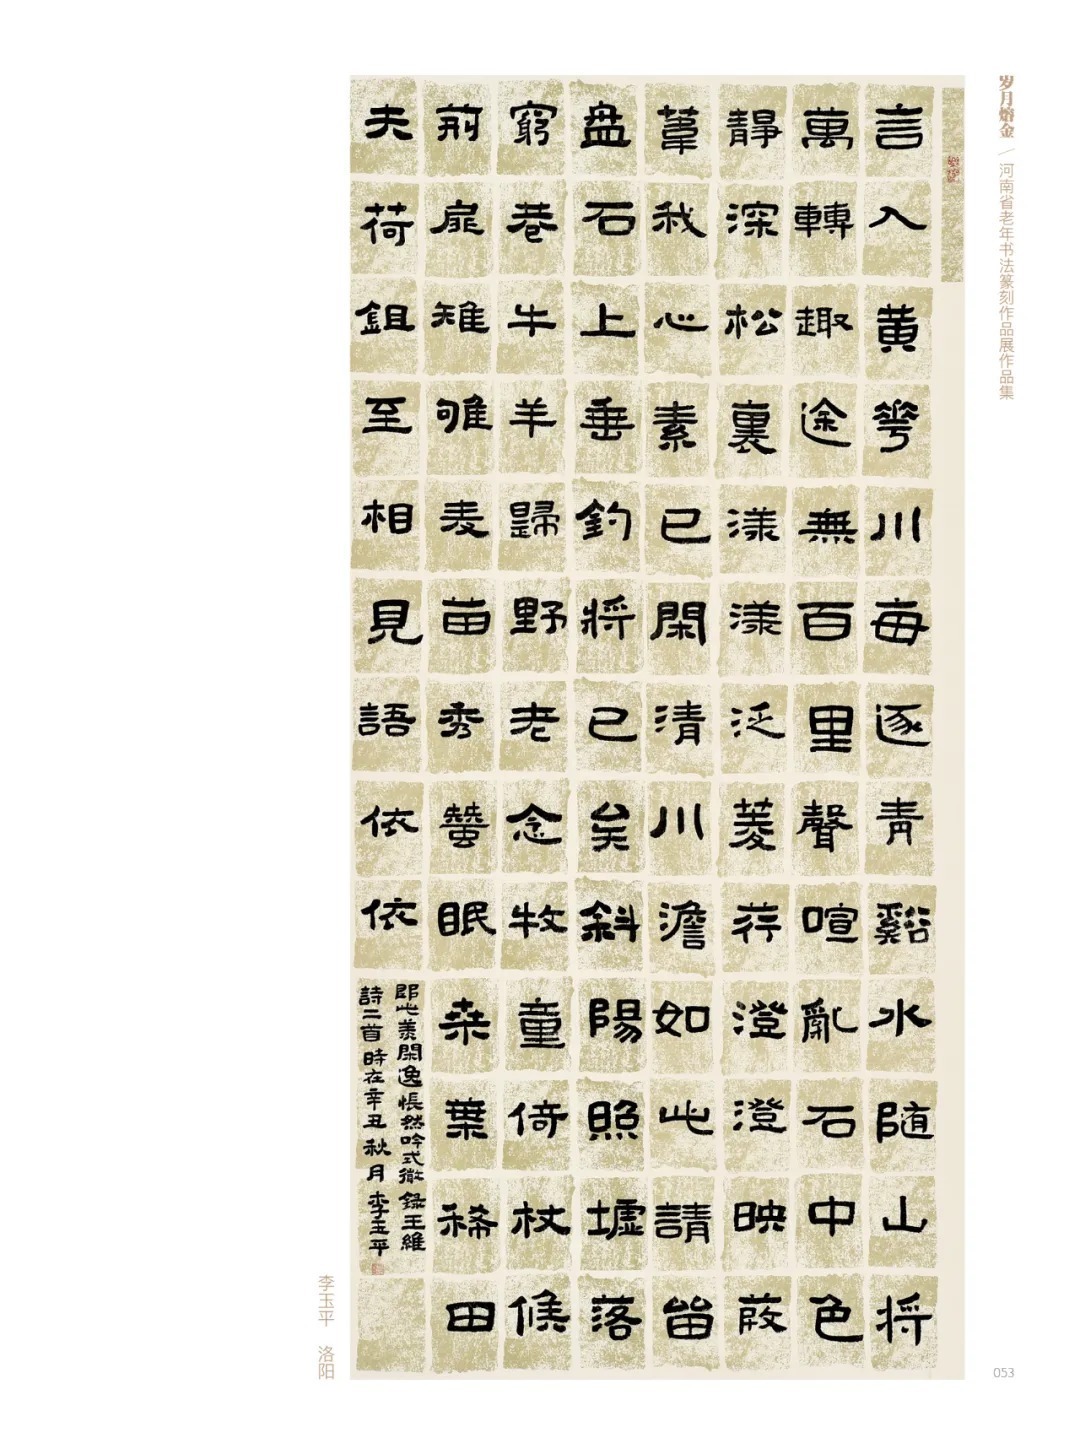 岁月熔金／河南省老年书法篆刻作品展作品集
言入黄華川每逐青谿水随山将
萬轉趣途無百里聲喧亂石中色
靜深松裏漾漾泛菱荇澄澄映葭
葦我心素已閑清川澹如此請留
盘石上垂釣将已矣斜陽照墟落
窮巷牛羊歸野老念牧童倚杖候
荊扉雉雊麦苗秀蠶眠桑葉稀田
夫荷鉏至相見語依依
即此羨閑逸悵然吟式微 録王維
詩二首時在辛丑秋月李玉平
李玉平 洛阳
053